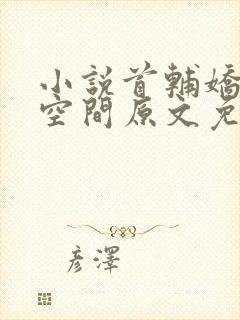 小說首輔嬌
空間原文免
彦澤